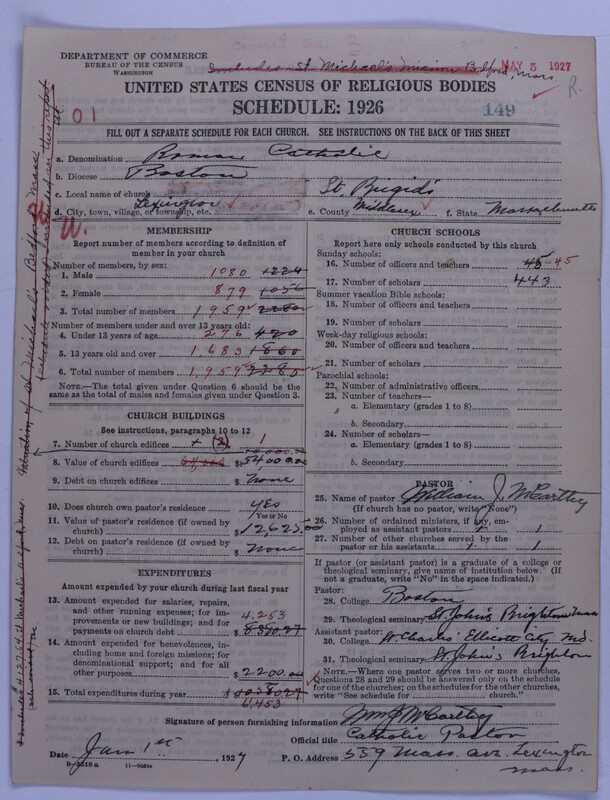 count as 2
DEPARTMENT OF COMMERCE
BUREAU OF THE CENSUS
WASHINGTON
Includes St. Michael's mission Bedford, Mass.
MAY 5 1927
R.
UNITED STATES CENSUS OF RELIGIOUS BODIES
SCHEDULE: 1926
149
01
FILL OUT A SEPARATE SCHEDULE FOR EACH CHURCH. SEE INSTRUCTIONS ON THE BACK OF THIS SHEET
a. Denomination Roman Catholic
b. Diocese Boston
c. Local name of church St. Brigid's
d. City, town, village, or township, etc. Lexington e. County Middlesex f. State Massachusetts
MEMBERSHIP
Report number of members according to definition of member in your church
Number of members, by sex:
1. Male 1080 1224
2. Female 879 1056
3. Total number of members 1959 2280
Number of members under and over 13 years old:
4. Under 13 years of age 276 420
5. 13 years old and over 1683 1860
6. Total number of members 1,959 2280
NOTE.—The total given under Question 6 should be the same as the total of males and females given under Question 3.
CHURCH BUILDINGS
See instructions, paragraphs 10 to 12
7. Number of church edifices (2) 1
8. Value of church edifices $ 54,000.00
9. Debt on church edifices $ none
10. Does church own pastor's residence yes
Yes or No
11. Value of pastor's residence (if owned by church) $ 12,625.00
12. Debt on pastor's residence (if owned by church) $ none
EXPENDITURES
Amount expended by your church during last fiscal year
13. Amount expended for salaries, repairs, and other running expenses; for improvements or new buildings; and for payments on church debt 4,253 $
14. Amount expended for benevolences, including home and foreign missions; for denominational support; and for all other purposes $ 2200.00
15. Total expenditures during year $
6,453
CHURCH SCHOOLS
Report here only schools conducted by this church
Sunday schools:
16. Number of officers and teachers 45 45
17. Number of scholars 443
Summer vacation Bible schools:
18. Number of officers and teachers
19. Number of scholars
Week-day religious schools:
20. Number of officers and teachers
21. Number of scholars
Parochial schools:
22. Number of administrative officers
23. Number of teachers—
a. Elementary (grades 1 to 8)
b. Secondary
24. Number of scholars—
a. Elementary (grades 1 to 8)
b. Secondary
PASTOR
25. Name of pastor William J. McCarthy
(If church has no pastor, write "None")
26. Number of ordained ministers, if any, employed as assistant pastors 1 1
27. Number of other churches served by the pastor or his assistants 1 1
If pastor (or assistant pastor) is a graduate of a college or theological seminary, give name of institution below. (If not a graduate, write "No" in the space indicated.)
Pastor:
28. College Boston
29. Theological seminary St. John's Brighton Mass
Assistant pastor:
30. College St. Charles Ellicott City Md.
31. Theological seminary St. John's Brighton
NOTE.—Where one pastor serves two or more churches, Questions 28 and 29 should be answered only on the schedule for one of the churches; on the schedules for the other churches, write "See schedule for church."
Signature of person furnishing information Wm J. McCarthy
Official title Catholic Pastor
Date Jan 1st, 1927 P. O. Address 539 Mass. Ave. Lexington
Mass.
8-5518a 11—9584a